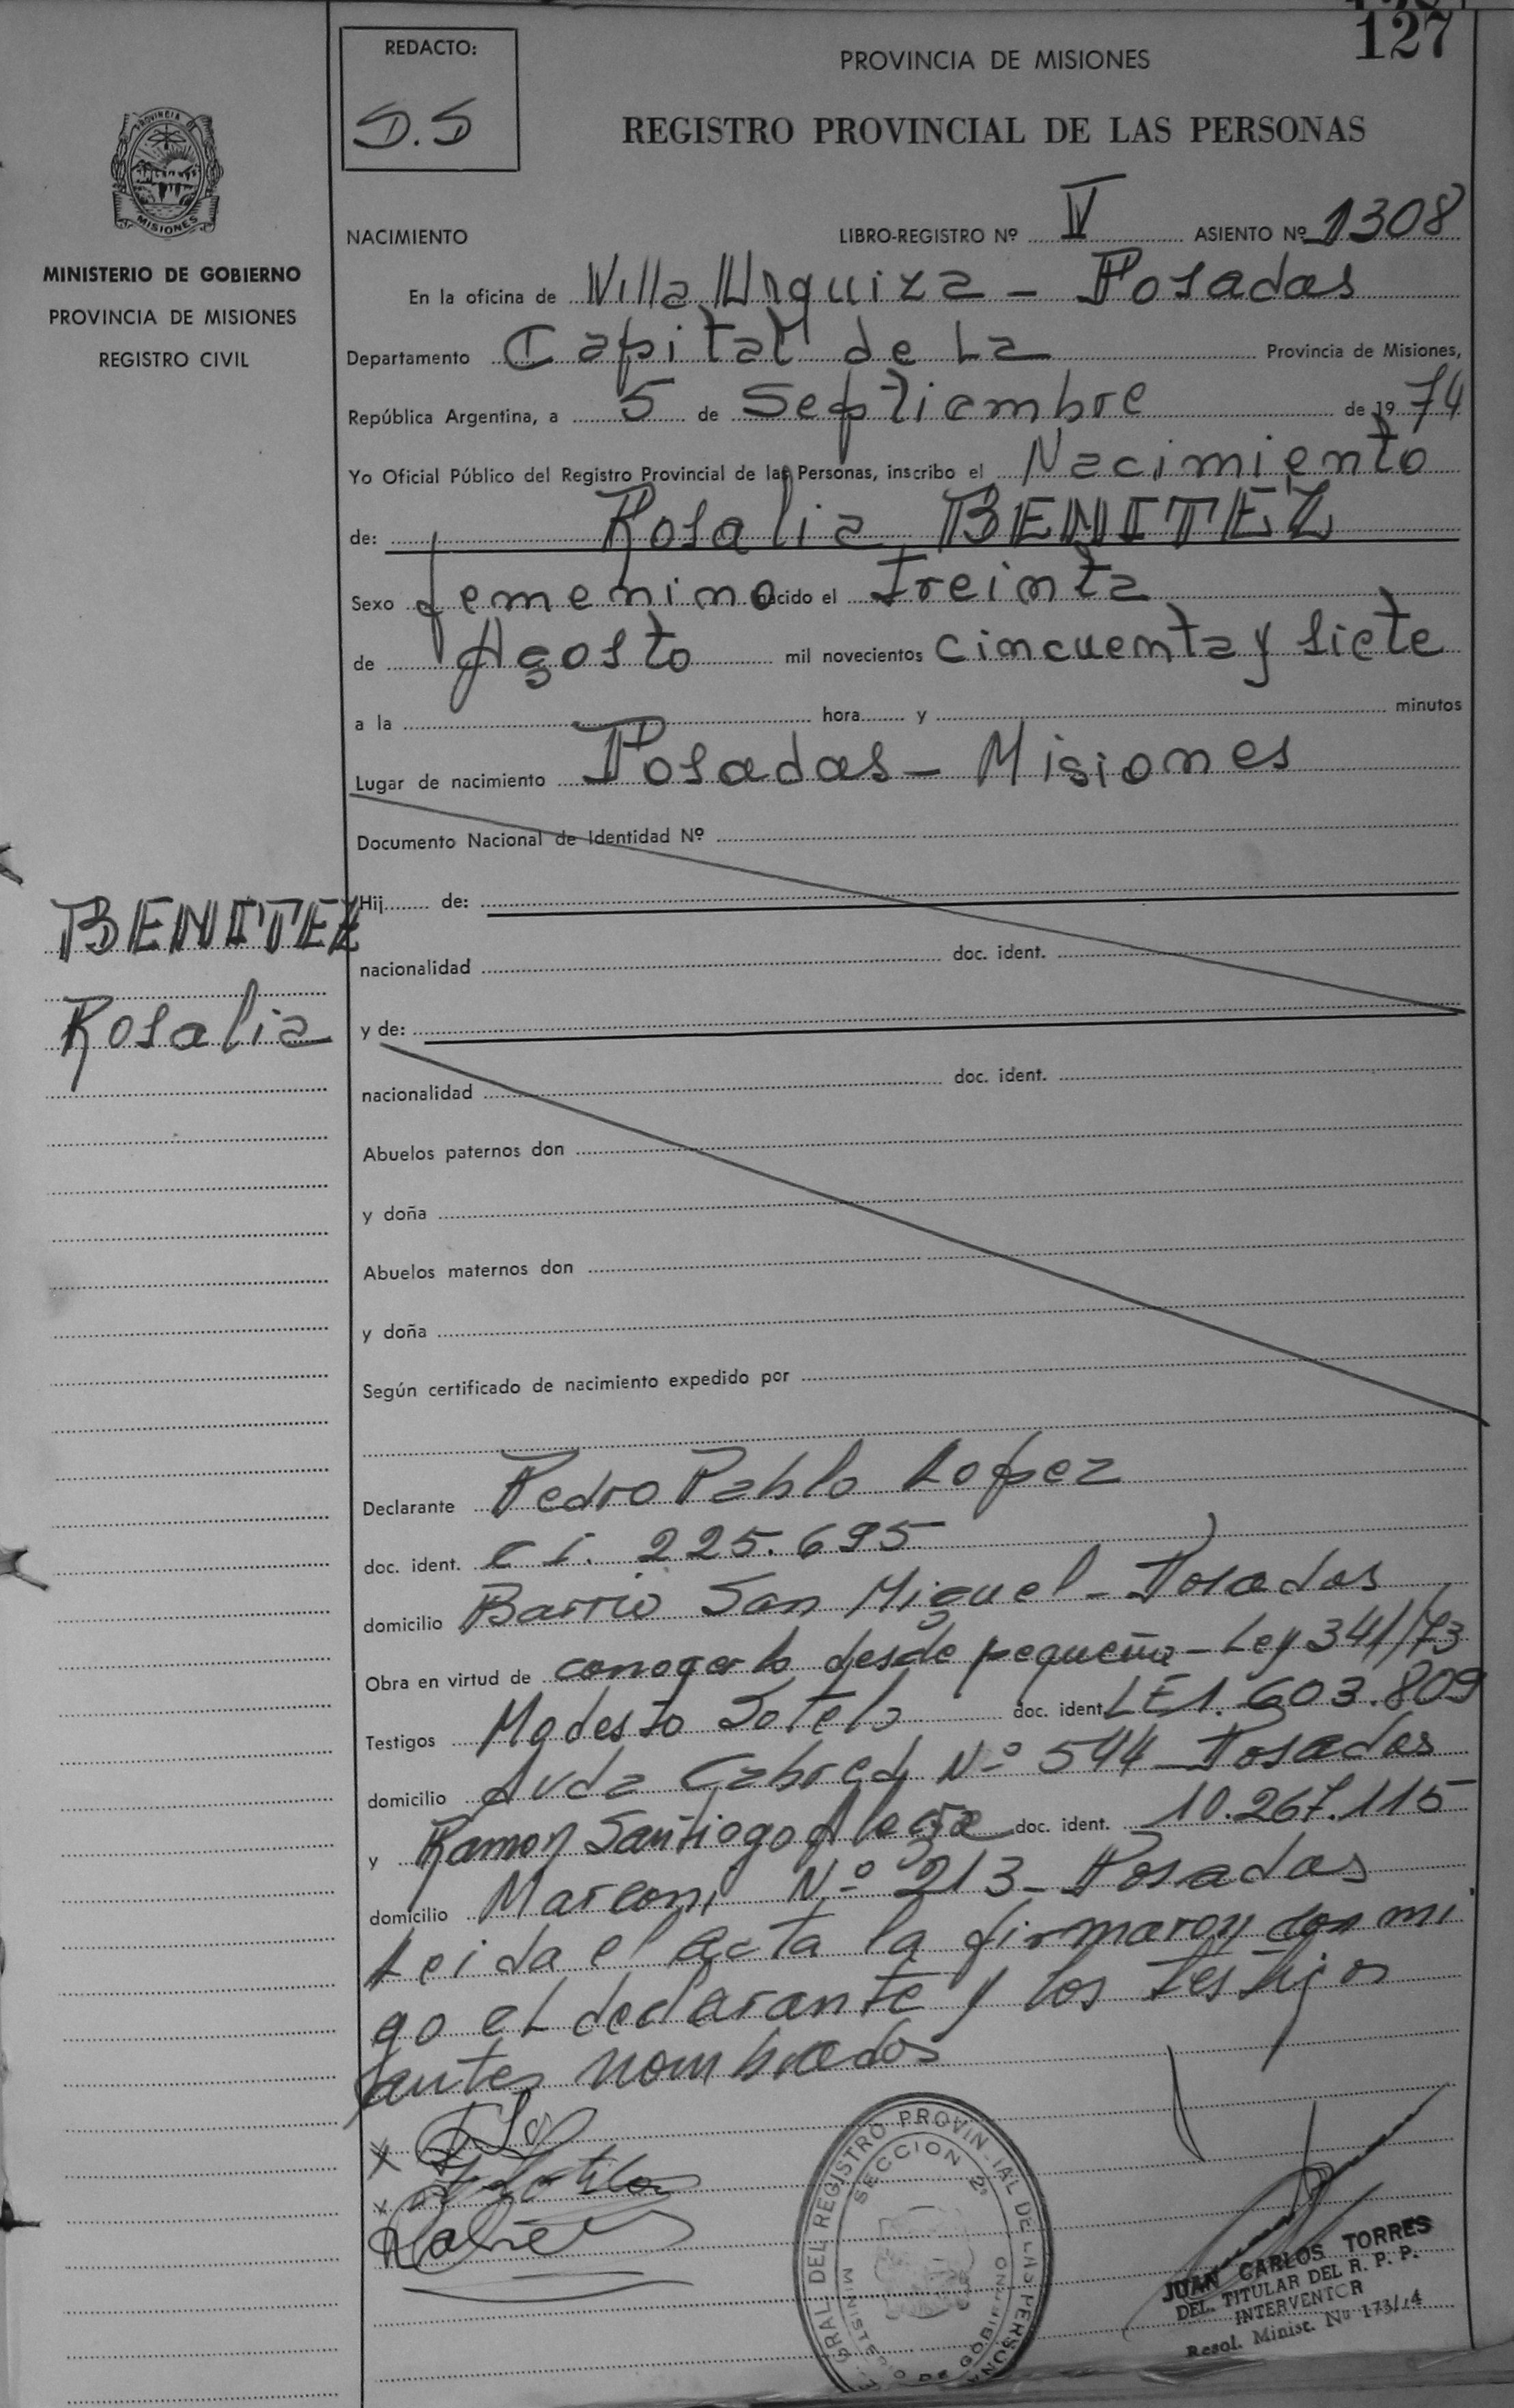 127
REDACTO:
D.S
PROVINCIA DE MISIONES
REGISTRO PROVINCIAL DE LAS PERSONAS
PROVINCIA DE
MISIONES
MINISTERIO DE GOBIERNO
PROVINCIA DE MISIONES
REGISTRO CIVIL
NACIMIENTO LIBRO-REGISTRO Nº IV ASIENTO Nº 1308
En la oficina de Villa Urquiza - Posadas
Departamento Capital de La Provincia de Misiones,
República Argentina, a 5 de Septiembre de 19 74
Yo Oficial Público del Registro Provincial de las Personas, inscribo el Nacimiento
de: Rosalia BENITEZ
Sexo femenino nacido el Treinta
de Agosto mil novecientos cincuenta y siete
a la hora y minutos
Lugar de nacimiento Posadas - Misiones
Documento Nacional de Identidad Nº
BENITEZ
Rosalia
Hij de:
nacionalidad doc. ident.
y de:
nacionalidad doc. ident.
Abuelos paternos don
y doña
Abuelos maternos don
y doña
Según certificado de nacimiento expedido por
Declarante Pedro Pablo Lopez
doc. ident. C I. 225.695
domicilio Barrio San Miguel - Posadas
Obra en virtud de conocerlo desde pequeña - Ley 341/73
Testigos Modesto Sotelo doc. ident. LE 1.603.809
domicilio Avda Cabred Nº 544 - Posadas
y Ramon Santiago doc. ident. 10.267.115
domicilio Marconi Nº 213 - Posadas
Leida el acta la firmaron con mi
go el declarante y los testigos
antes nombrados
GRAL DEL REGISTRO PROVINCIAL DE LAS PERSONA
SECCION 2ª
MINISTERIO DE GOBIERNO
JUAN CARLOS TORRES
DEL. TITULAR DEL R. P. P.
INTERVENTOR
Resol. Minist. Nº 173/74